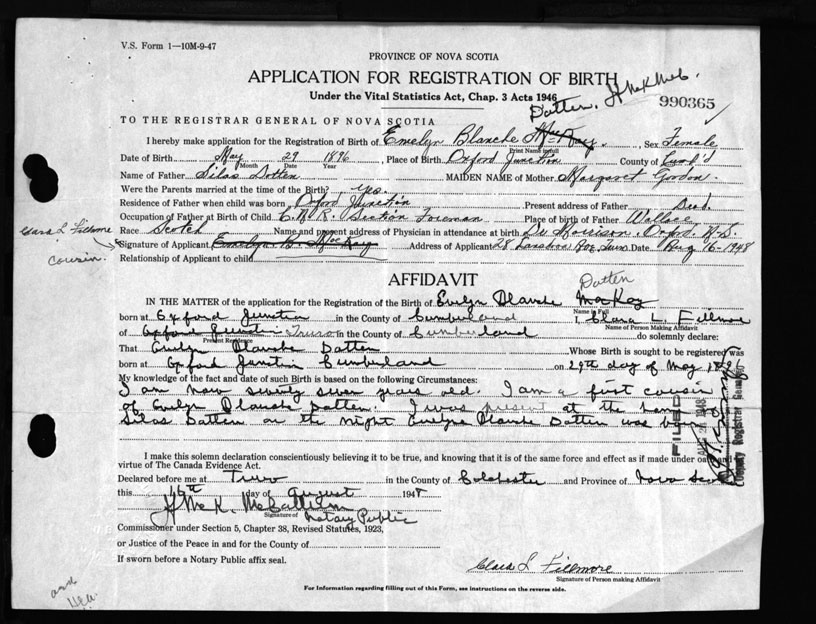 V.S. Form 1—10M-9-47
PROVINCE OF NOVA SCOTIA
APPLICATION FOR REGISTRATION OF BIRTH
Under the Vital Statistics Act, Chap. 3 Acts 1946
Datten. H McK McC.
990365
TO THE REGISTRAR GENERAL OF NOVA SCOTIA
I hereby make application for the Registration of Birth of Emelyn Blanche MacKay, Sex Female
Print Name in full
Date of Birth May 29 1896, Place of Birth Oxford Junction County of Cumb'd
Month Date Year
Name of Father Silas Dotten MAIDEN NAME of Mother Margaret Gordon.
Were the Parents married at the time of the Birth? yes.
Residence of Father when child was born Oxford Junction Present address of Father Dead.
Occupation of Father at Birth of Child C.N.R. Section Foreman Place of birth of Father Wallace
Clara L Fillmore
Race Scotch Name and present address of Physician in attendance at birth Dr Morrison. Oxford N.S.
Signature of Applicant Emelyn B. MacKay Address of Applicant 28 Date Aug 16-1948
cousin.
Relationship of Applicant to child
AFFIDAVIT
Datten
IN THE MATTER of the application for the Registration of Birth of Evelyn Blanche MacKay
Name in Full
born at Oxford Junction in the County of Cumberland I, Clara L. Fillmore
Name of Person Making Affidavit
of Oxford Junction Truro in the County of Cumberland do solemnly declare:
Present Residence
That Evelyn Blanche Datten Whose Birth is sought to be registered was
born at Oxford Junction Cumberland on 29th day of May 1896
My knowledge of the fact and date of such Birth is based on the following Circumstances:
I am now seventy seven years old. I am a first cousin
of Evelyn Blanche Datten. I was present at the home of
Silas Datten on the night Evelyn Blanche Datten was born
FILED
1948
Deputy Registrar General
I make this solemn declaration conscientiously believing it to be true, and knowing that it is of the same force and effect as if made under oath and
virtue of The Canada Evidence Act.
Declared before me at Truro in the County of Colchester and Province of Nova Scotia
this 16th day of August 1948
H McK. McCallum
Signature of Notary Public
Commissioner under Section 5, Chapter 38, Revised Statutes, 1923,
or Justice of the Peace in and for the County of
If sworn before a Notary Public affix seal.
Clara L Fillmore
Signature of Person making Affidavit
For Information regarding filling out of this Form, see instructions on the reverse side.